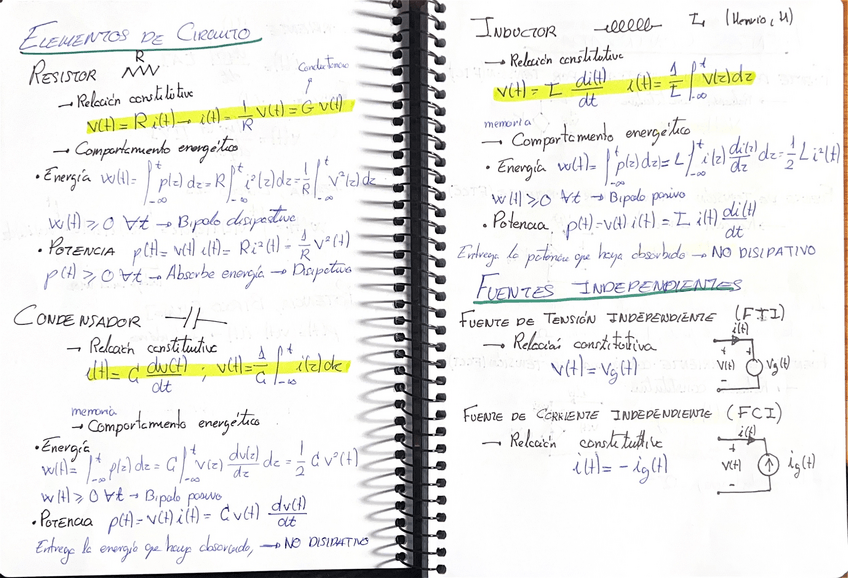 ELEMENTOS DE CIRCUITO
RESISTOR R
Conductancia
→ Relación constitutiva
v(t) = R i(t) → i(t) = 1/R v(t) = G v(t)
→ Comportamiento energético
• Energía w(t) = ∫_{-∞}^{t} p(z) dz = R ∫_{-∞}^{t} i²(z) dz = 1/R ∫_{-∞}^{t} v²(z) dz
w(t) ≥ 0 ∀t → Bipolo disipativo
• POTENCIA p(t) = v(t) i(t) = R i²(t) = 1/R v²(t)
p(t) ≥ 0 ∀t → Absorbe energía → Disipativo
CONDENSADOR
→ Relación constitutiva
i(t) = C dv(t)/dt ; v(t) = 1/C ∫_{-∞}^{t} i(z) dz
memoria
→ Comportamiento energético
• Energía
w(t) = ∫_{-∞}^{t} p(z) dz = C ∫_{-∞}^{t} v(z) dv(z)/dz dz = 1/2 C v²(t)
w(t) ≥ 0 ∀t → Bipolo pasivo
• POTENCIA p(t) = v(t) i(t) = C v(t) dv(t)/dt
Entrega la energía que haya absorbido, → NO DISIPATIVO
INDUCTOR L (Henrio, H)
→ Relación constitutiva
v(t) = L di(t)/dt i(t) = 1/L ∫_{-∞}^{t} v(z) dz
memoria
→ Comportamiento energético
• Energía w(t) = ∫_{-∞}^{t} p(z) dz = L ∫_{-∞}^{t} i(z) di(z)/dz dz = 1/2 L i²(t)
w(t) ≥ 0 ∀t → Bipolo pasivo
• Potencia p(t) = v(t) i(t) = L i(t) di(t)/dt
Entrega la potencia que haya absorbido → NO DISIPATIVO
FUENTES INDEPENDIENTES
FUENTE DE TENSIÓN INDEPENDIENTE (FTI)
→ Relación constitutiva
v(t) = vg(t)
i(t)
+ +
v(t) vg(t)
- -
FUENTE DE CORRIENTE INDEPENDIENTE (FCI)
→ Relación constitutiva
i(t) = - ig(t)
i(t)
+
v(t) ig(t)
-